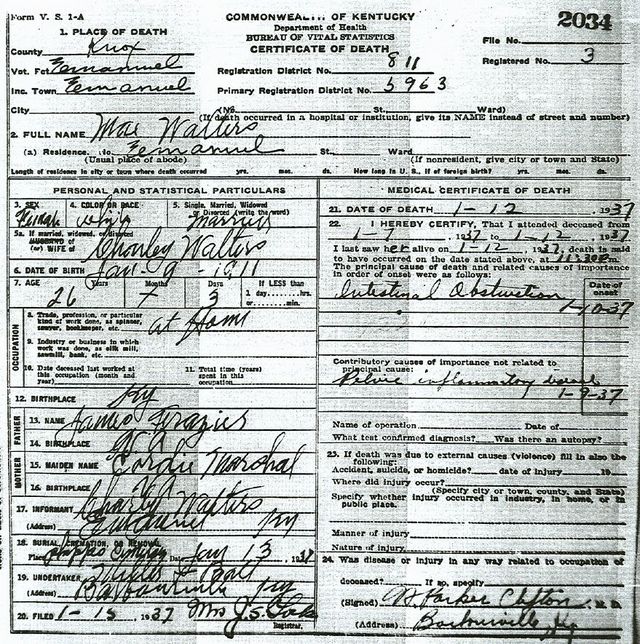 Form V. S. 1-A
COMMONWEALTH OF KENTUCKY
Department of Health
BUREAU OF VITAL STATISTICS
CERTIFICATE OF DEATH
2034
File No.
Registered No. 3
1. PLACE OF DEATH
County Knox
Vot. Pct Emanuel
Inc. Town Emanuel
Registration District No. 811
Primary Registration District No. 5963
City (No. St. Ward)
(If death occurred in a hospital or institution, give its NAME instead of street and number)
2. FULL NAME Mae Walters
(a) Residence. No. Emanuel St. Ward
(Usual place of abode) (If nonresident, give city or town and State)
Length of residence in city or town where death occurred yrs. mos. ds. How long in U. S., if of foreign birth? yrs. mos. ds.
PERSONAL AND STATISTICAL PARTICULARS
3. SEX Female
4. COLOR OR RACE White
5. Single, Married, Widowed or Divorced (write the word) Married
5a. If married, widowed, or divorced
HUSBAND of
(or) WIFE of Charley Walters
6. DATE OF BIRTH Jan - 9 - 1911
7. AGE Years Months Days If LESS than
26 X 3 1 day.....hrs.
or.....min.
OCCUPATION
8. Trade, profession, or particular kind of work done, as spinner, sawyer, bookkeeper, etc. at Home
9. Industry or business in which work was done, as silk mill, sawmill, bank, etc.
10. Date deceased last worked at this occupation (month and year)
11. Total time (years) spent in this occupation
12. BIRTHPLACE Ky
FATHER
13. NAME James Frazier
14. BIRTHPLACE
MOTHER
15. MAIDEN NAME Cordie Marshal
16. BIRTHPLACE
17. INFORMANT Charly Walters
(Address) Emanuel Ky
18. BURIAL, CREMATION, OR REMOVAL
Place Date Jan 13, 1937
19. UNDERTAKER
(Address) Barbourville Ky
20. FILED 1-15 1937 Mrs J. S.
Registrar.
MEDICAL CERTIFICATE OF DEATH
21. DATE OF DEATH 1-12 1937
22. I HEREBY CERTIFY, That I attended deceased from
1-1 1937 to 1-12 1937
I last saw her alive on 1-12 1937, death is said
to have occurred on the date stated above, at 11:30 P.m.
The principal cause of death and related causes of importance
in order of onset were as follows:
Date of onset
Intestinal Obstruction
1-10-37
Contributory causes of importance not related to
principal cause:
Pelvic inflammatory disease
1-9-37
Name of operation Date of
What test confirmed diagnosis? Was there an autopsy?
23. If death was due to external causes (violence) fill in also the
following:
Accident, suicide, or homicide? date of injury 19
Where did injury occur?
(Specify city or town, county, and State)
Specify whether injury occurred in industry, in home, or in
public place.
Manner of injury
Nature of injury
24. Was disease or injury in any way related to occupation of
deceased? If so, specify
(Signed) Parker Clifton, M. D.
(Address) Barbourville, Ky